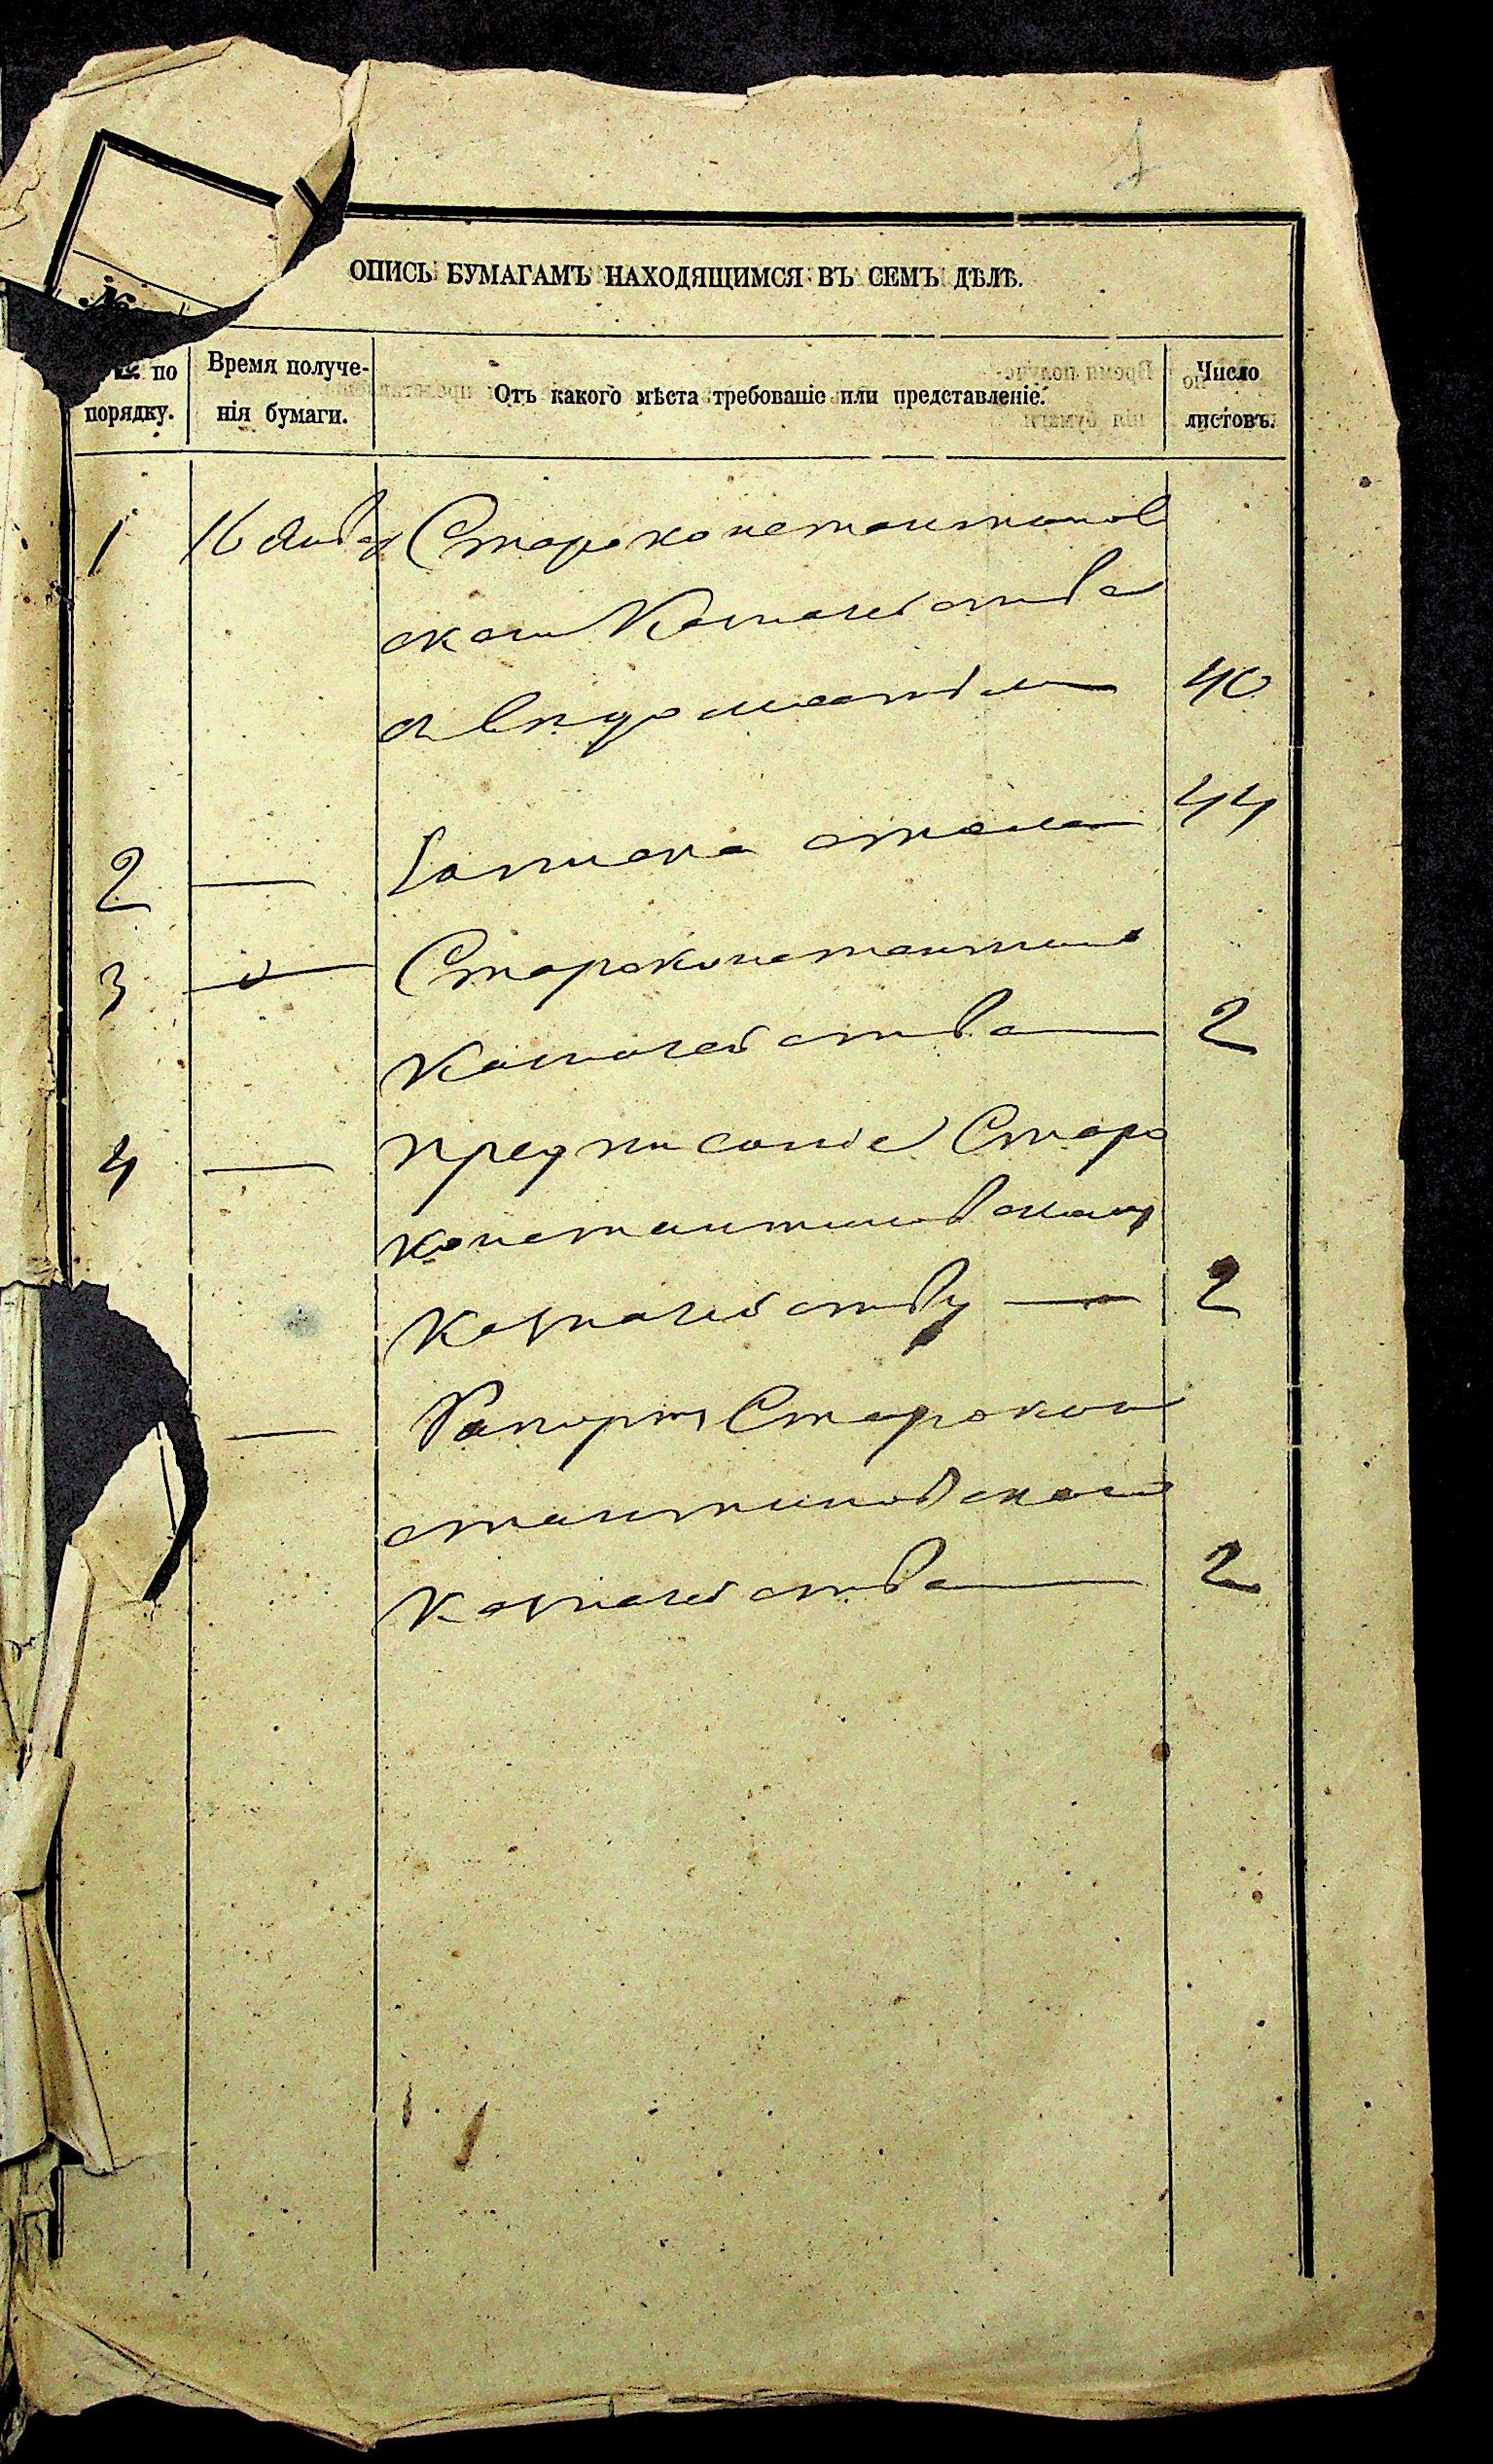 1
ОПИСЬ БУМАГАМЪ НАХОДЯЩИМСЯ ВЪ СЕМЪ ДѢЛѢ.
№ по порядку.
Время получе-
нія бумаги.
Отъ какого мѣста требованіе или представленіе.
Число
листовъ.
1 16 Январ Староконстантинов
скаго Казначейства
40
44
2 — Записка стола
3 — Староконстантин
Казначейства — 2
4 — предписаніе Старо
константиновскому
казначейству — 2
— Рапортъ Старокон
стантиновскаго
казначейства — 2